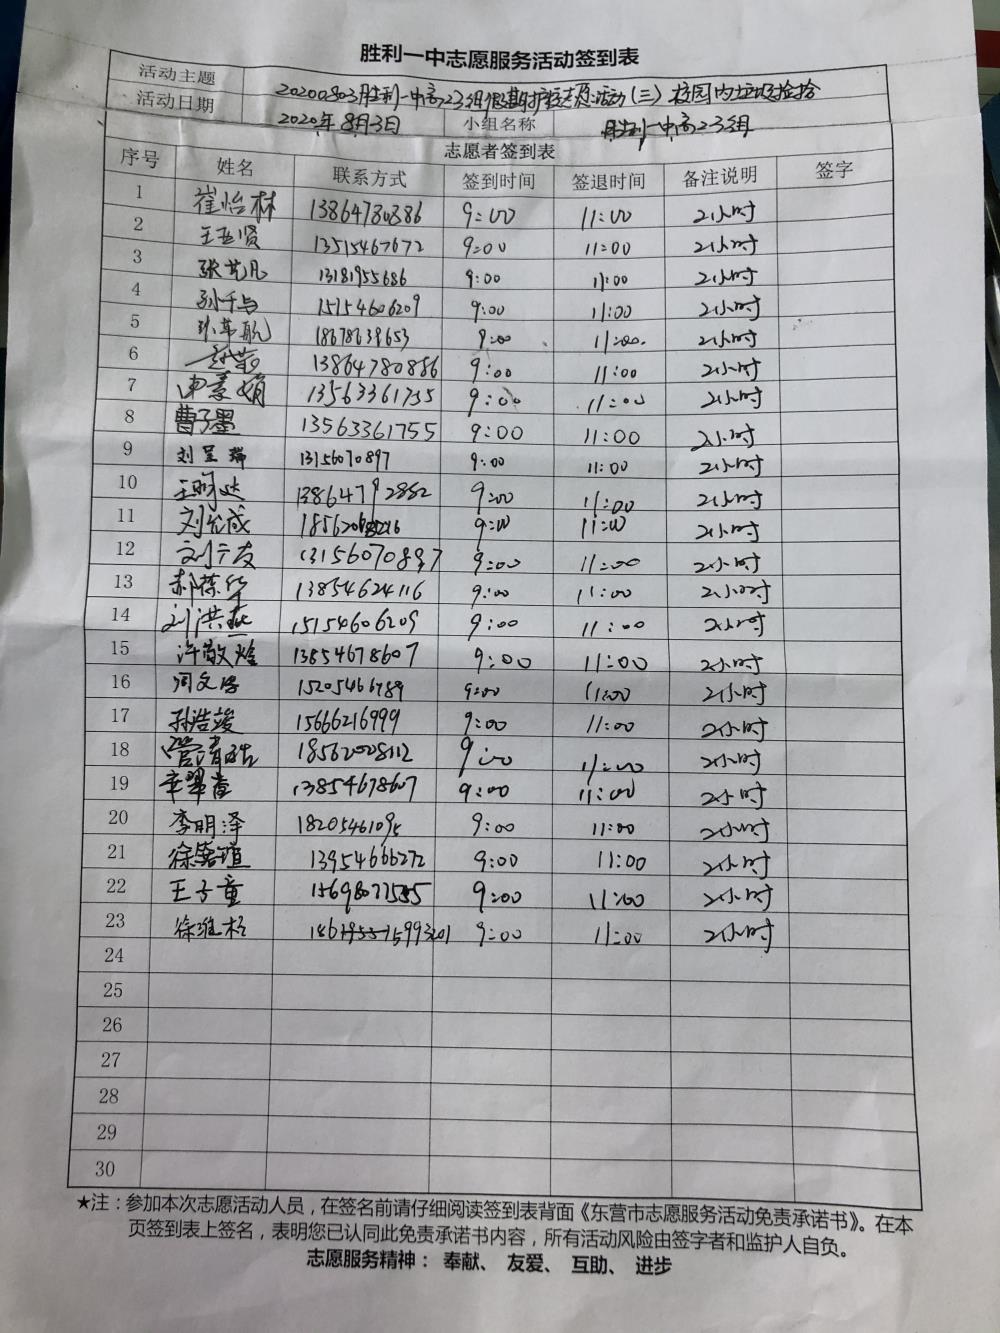 胜利一中志愿服务活动签到表
活动主题 20200803胜利一中高23组假期护校志愿活动(三)校园内垃圾捡拾
活动日期 2020年8月3日 小组名称 胜利一中高23组
志愿者签到表
序号 姓名 联系方式 签到时间 签退时间 备注说明 签字
1 崔怡林 13864780886 9:00 11:00 2小时
2 王亚贤 13515467672 9:00 11:00 2小时
3 张艺凡 13181955686 9:00 11:00 2小时
4 孙千与 15154606209 9:00 11:00 2小时
5 18678638653 9:00 11:00 2小时
6 13864780886 9:00 11:00 2小时
7 13563361755 9:00 11:00 2小时
8 曹子墨 13563361755 9:00 11:00 2小时
9 刘呈瑞 13156070897 9:00 11:00 2小时
10 王明达 13864792882 9:00 11:00 2小时
11 9:00 11:00 2小时
12 13156070897 9:00 11:00 2小时
13 13854624116 9:00 11:00 2小时
14 刘洪燕 15154606209 9:00 11:00 2小时
15 许敬煊 13854678607 9:00 11:00 2小时
16 15205466789 9:00 11:00 2小时
17 孙浩竣 15666216999 9:00 11:00 2小时
18 18562028112 9:00 11:00 2小时
19 辛翠香 13854678607 9:00 11:00 2小时
20 李明泽 9:00 11:00 2小时
21 13954666272 9:00 11:00 2小时
22 王子童 9:00 11:00 2小时
23 徐维松 9:00 11:00 2小时
24
25
26
27
28
29
30
★注：参加本次志愿活动人员，在签名前请仔细阅读签到表背面《东营市志愿服务活动免责承诺书》。在本
页签到表上签名，表明您已认同此免责承诺书内容，所有活动风险由签字者和监护人自负。
志愿服务精神： 奉献、 友爱、 互助、 进步